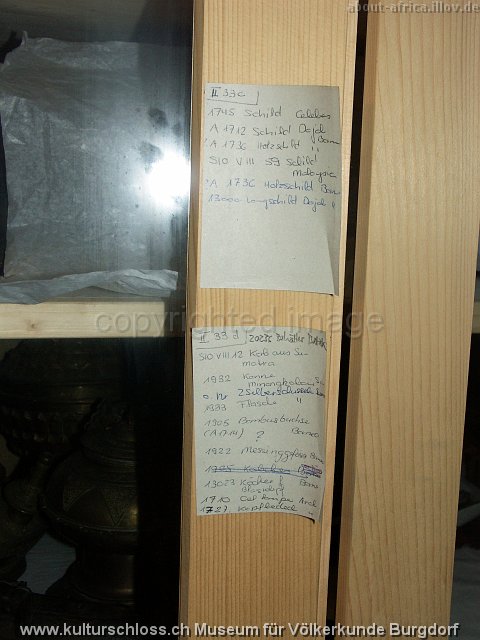 about-africa.illov.de
II 33c
1745 Schild Celebes
A 1712 Schild Dajak
A 1736 Holzschild Borneo "
SIO VIII 59 Schild
Malaysia
A 1736 Holzschild Borneo
13000 Langschild Dajak "
copyrighted image
II 33 d 20285 Behälter Batak
SIO VIII 12 Korb aus Su-
matra
1932 Kanne
Minangkabau Su
o. Nr 2 Silberschüsseln
1933 Flasche "
1305 Bambusbuchse
(A 1714) ? Borneo
1922 Messinggefäss Borneo
1725 Körbchen
13023 Köcher f Borneo
Blasrohr
1710 Öllampe
1727 Kopfbedeck "
www.kulturschloss.ch Museum für Völkerkunde Burgdorf